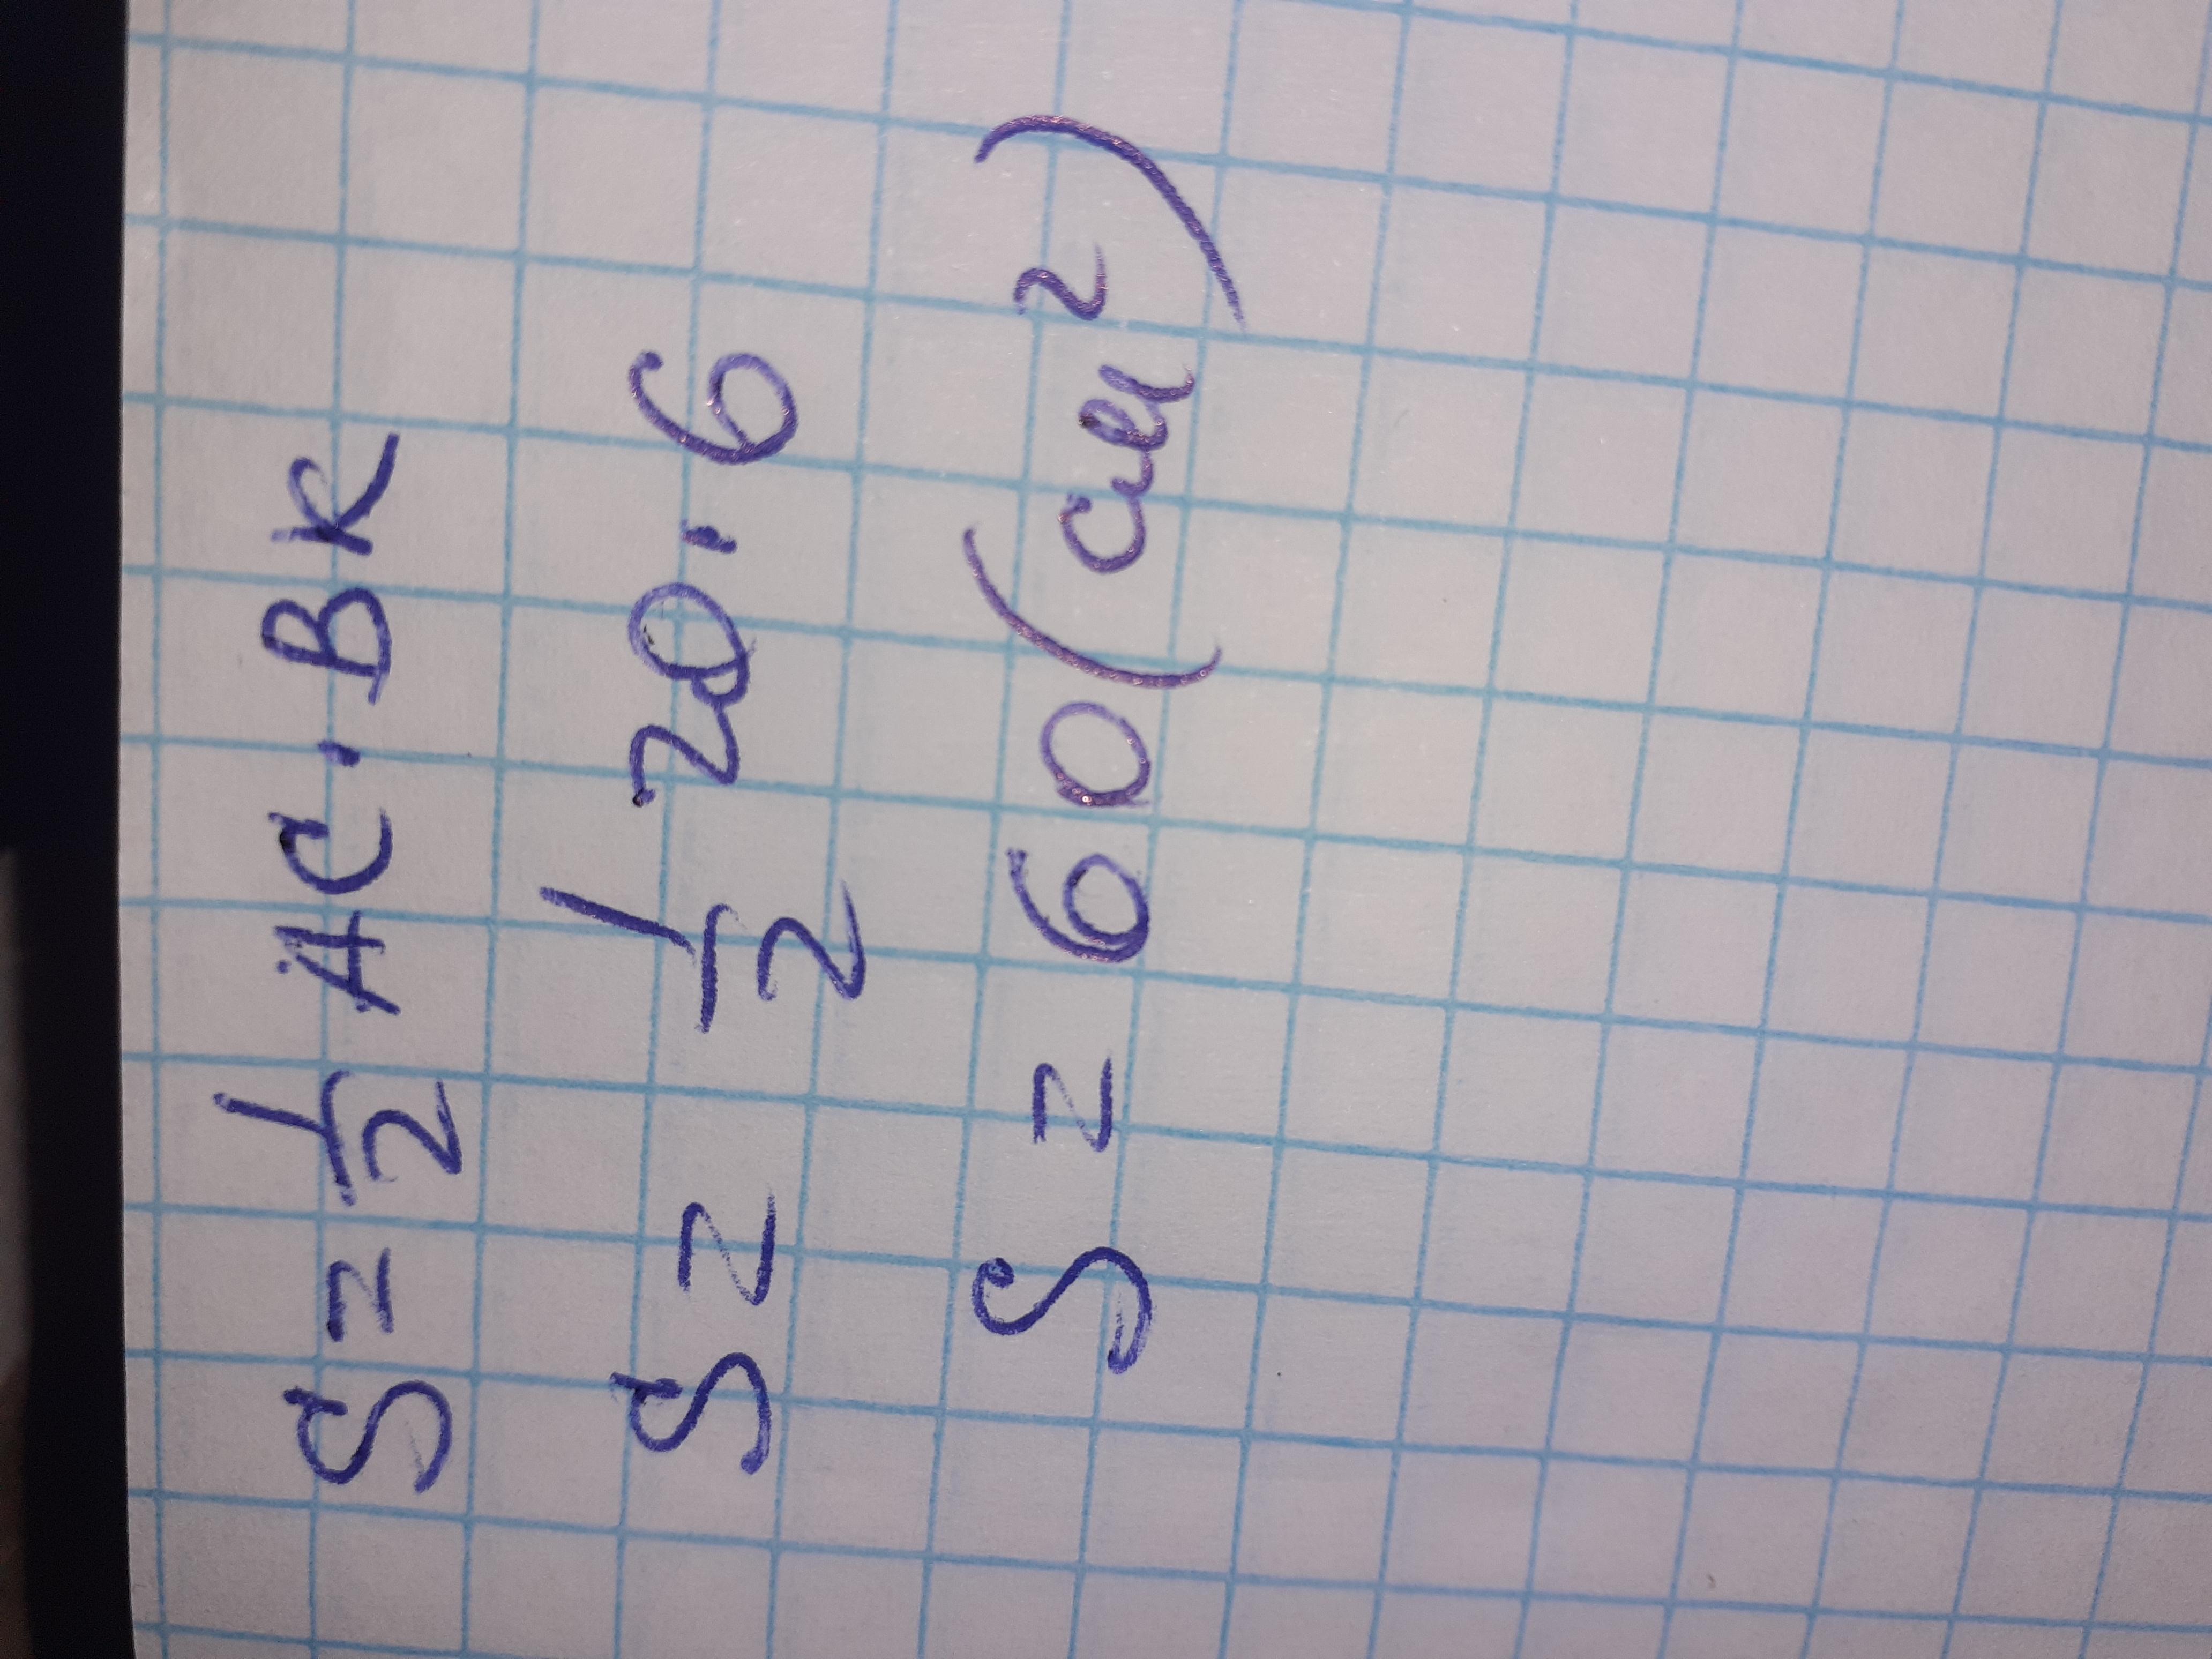 S = 1/2 AC · BK
S = 1/2 20 · 6
S = 60 (см²)